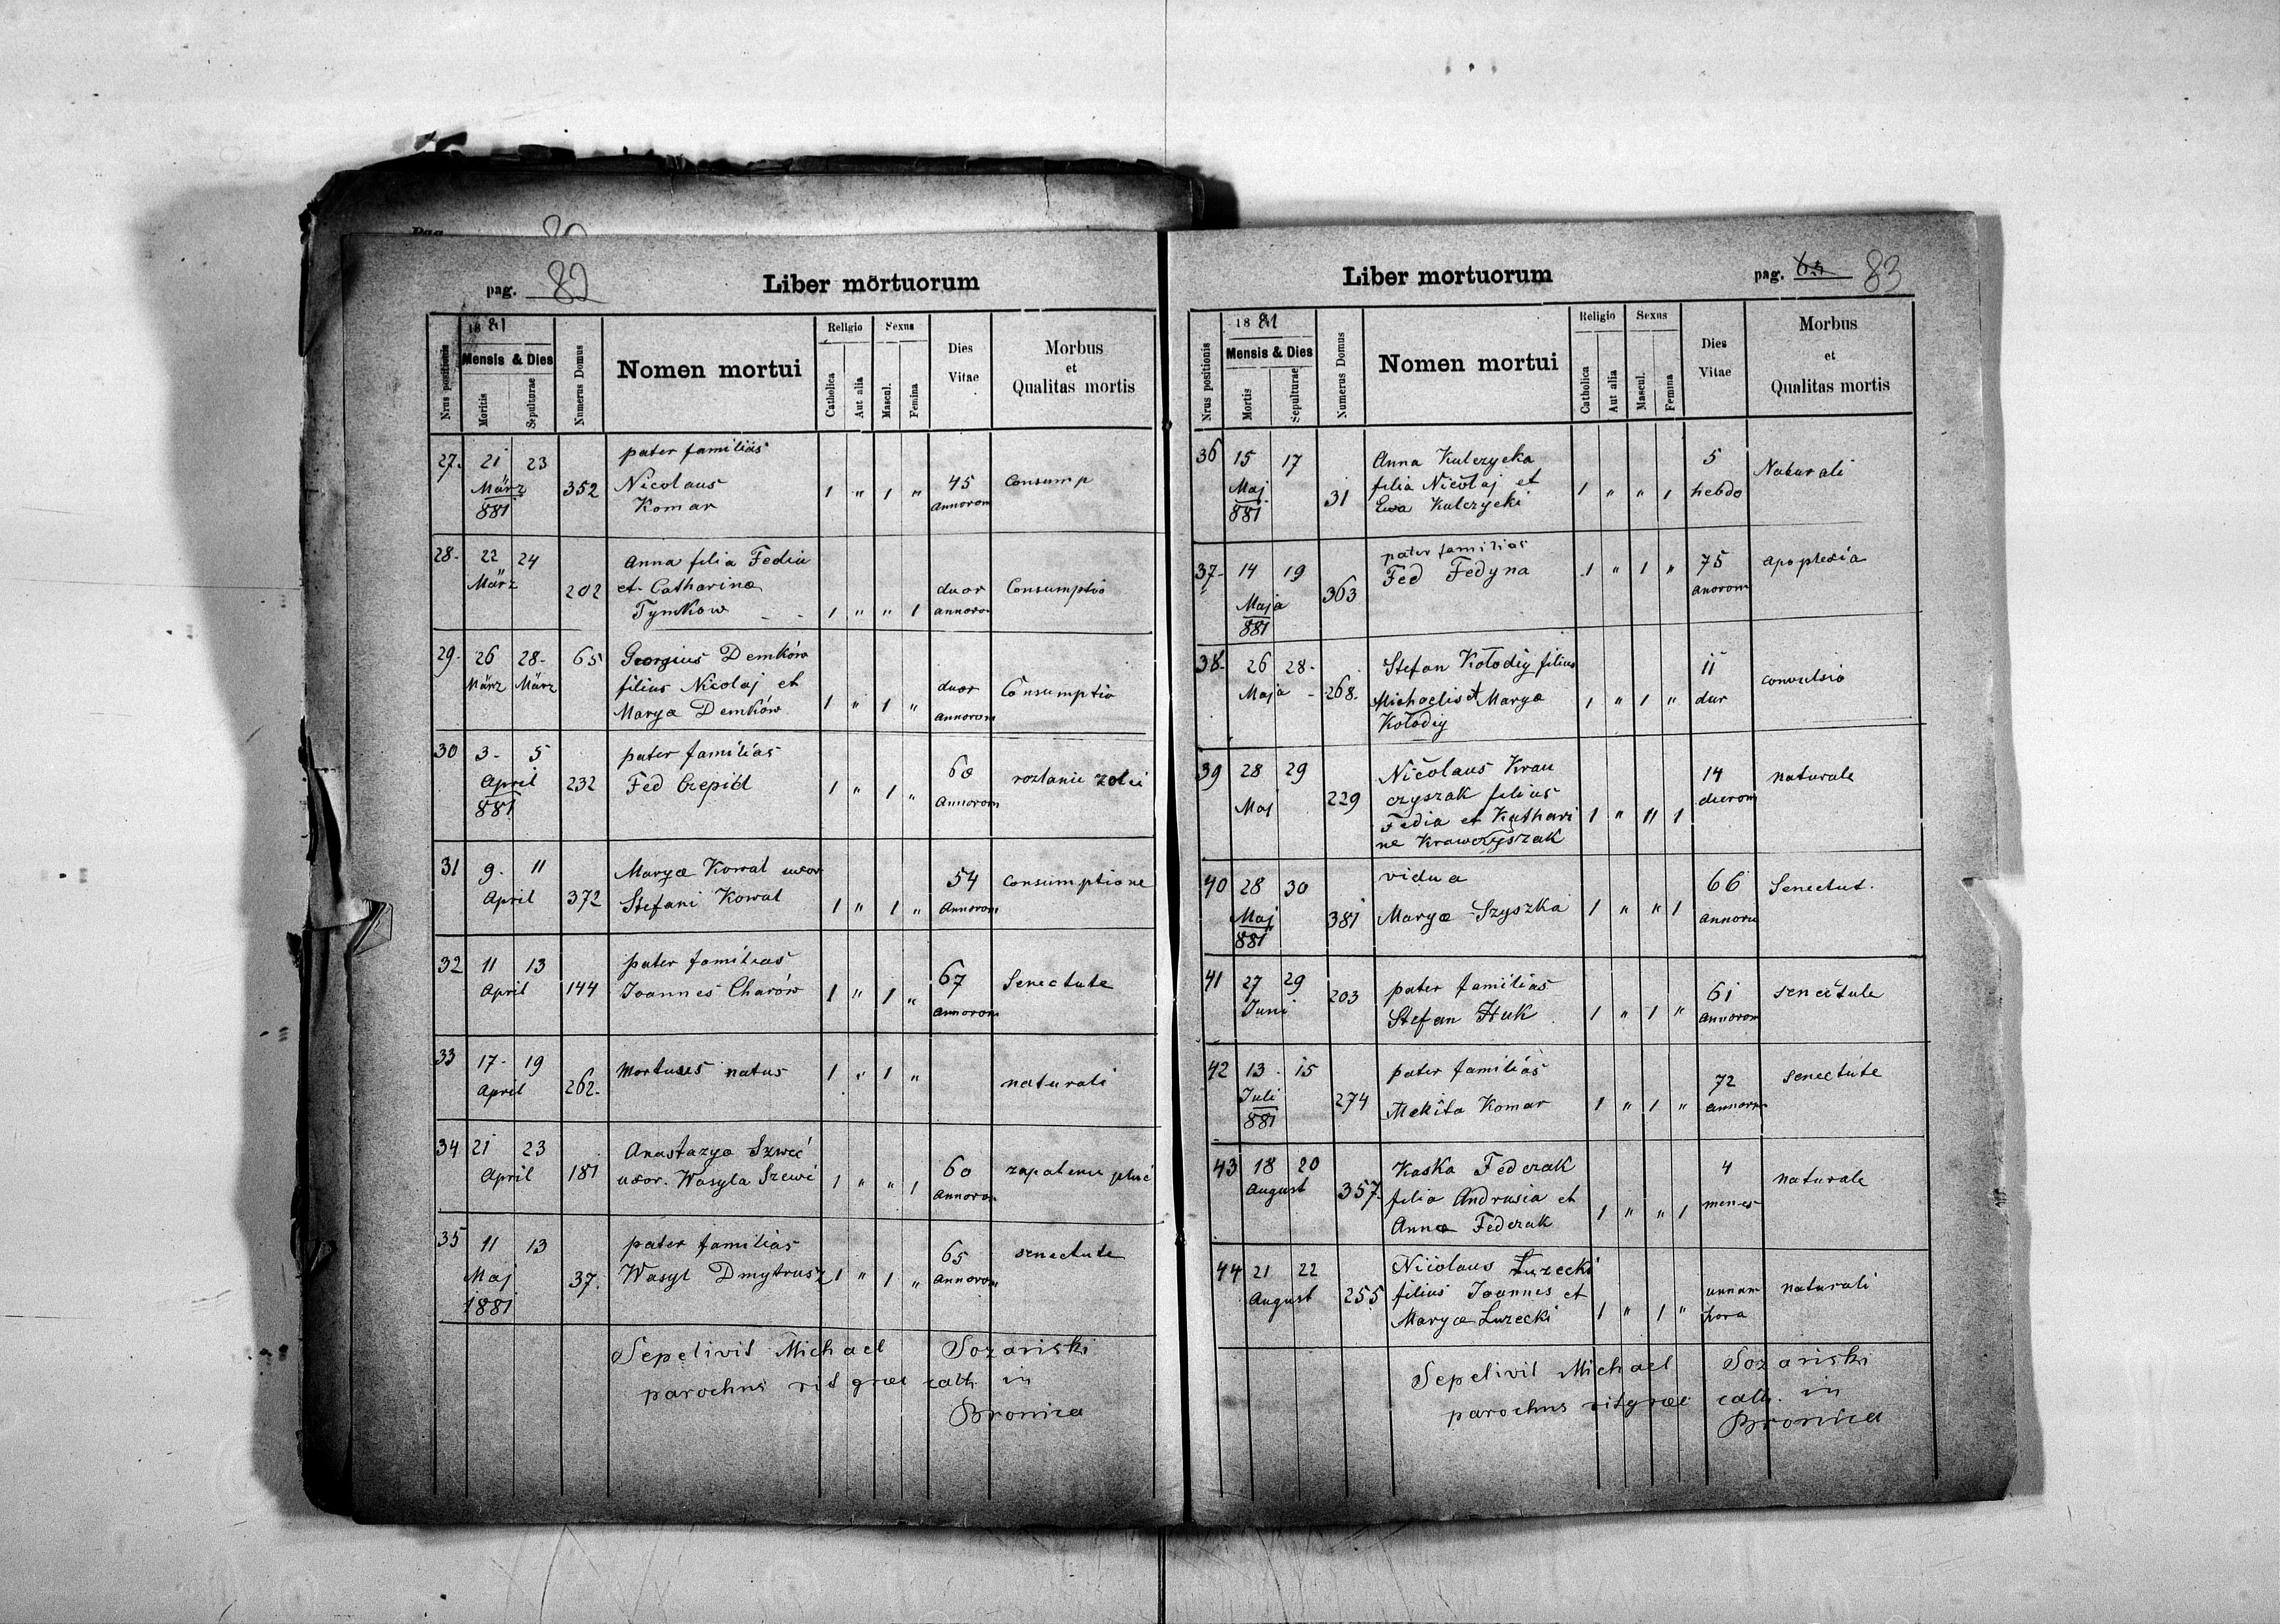 pag. 82
Liber mortuorum
Nrus positionis
1881
Mensis & Dies
Moritis
Sepulturae
Numerus Domus
Nomen mortui
Religio
Catholica
Aut alia
Sexus
Mascul.
Femina
Dies
Vitae
Morbus
et
Qualitas mortis
27. 21 23
März
881
352
pater familias
Nicolaus
Komar
1 " 1 "
45
annorom
Consump
28- 22 24
März
202
Anna filia Fedia
et Catharina
Tymkow
1 " " 1
duor
annoro
Consumptio
29- 26 28-
März März
65
Georgius Demków
filius Nicolaj et
Marya Demków
1 " 1 "
duor
annorom
Consumptio
30 3- 5
April
881
232
pater familias
Fed Czepid
1 " 1 "
60
Annorom
rozlanie zolci
31 9. 11
April
372
Marya Kowal uxor
Stefani Kowal
1 " 1 "
54
Annorom
Consumptione
32 11 13
April
144
pater familias
Joannes Charów
1 " 1 "
67
annorom
Senectute
33 17- 19
April
262-
Mortuus natus
1 " 1 "
naturali
34 21 23
April
181
Anastazya Szweć
uxor. Wasyla Szewć
1 " " 1
60
Annorom
zapalenie płuc
35 11 13
Maj
1881
37.
pater familias
Wasyl Dmytrusz
1 " 1 "
65
Annorom
senectute
Sepelivit Michael Sozański
parochus rit græc cath. in
Bronica
Liber mortuorum
pag. 83
Nrus positionis
1881
Mensis & Dies
Mortis
Sepulturae
Numerus Domus
Nomen mortui
Religio
Catholica
Aut alia
Sexus
Mascul.
Femina
Dies
Vitae
Morbus
et
Qualitas mortis
36 15 17
Maj
881
31
Anna Kulczycka
filia Nicolaj et
Ewa Kulczycki
1 " " 1
5
hebdo
Naturali
37- 14 19
Maja
881
363
pater familias
Fed Fedyna
1 " 1 "
75
anorom
apoplexia
38- 26 28-
Maja
268.
Stefan Kołodij filius
Michaelis et Marya
Kołodij
1 " 1 "
11
dur
convulsio
39 28 29
Maj
229
Nicolaus Krau
czyszak filius
Fedia et Kathari
ne Krawczyszak
1 " " 1
14
dierom
naturale
40 28 30
Maj
881
381
vidua
Marya Szyszka
1 " " 1
66
annoru
Senectut.
41 27 29
Juni
203
pater familias
Stefan Huk
1 " 1 "
61
annorom
senectute
42 13 15
Juli
881
274
pater familias
Mekita Komar
1 " 1 "
72
annorom
senectute
43 18 20
August
357.
Kaska Fedczak
filia Andrusia et
Anna Fedczak
1 " " 1
4
menes
naturale
44 21 22
August
255
Nicolaus Łuzecki
filius Joannes et
Marya Luzecki
1 " 1 "
unnam
hora
naturali
Sepelivit Michael Sozański
parochus rit græc cath. in
Bronica